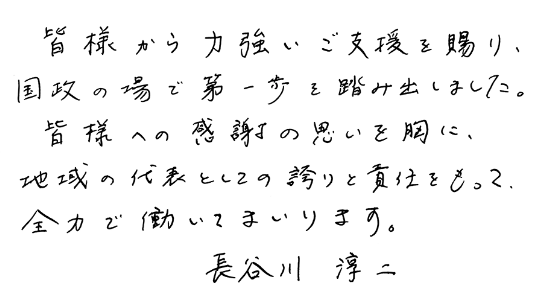 皆様から力強いご支援を賜り、
国政の場で第一歩を踏み出しました。
皆様への感謝の思いを胸に、
地域の代表としての誇りと責任をもって、
全力で働いてまいります。
長谷川 淳二